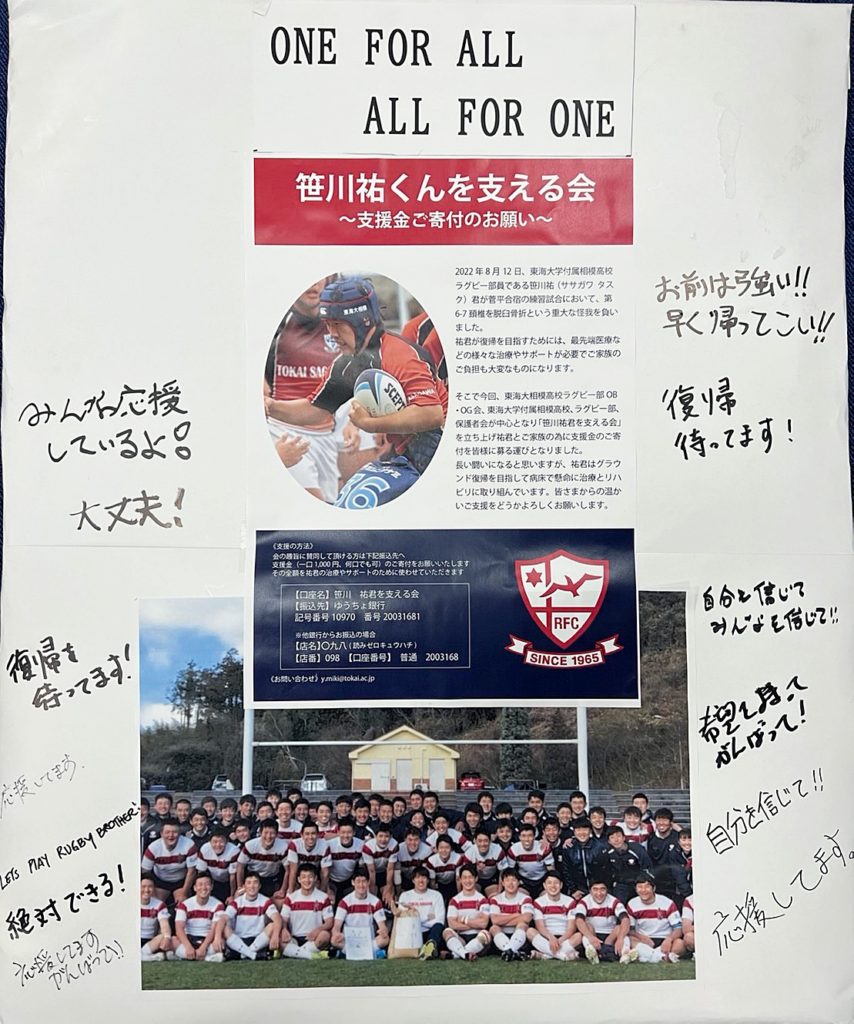 ONE FOR ALL
ALL FOR ONE
笹川祐くんを支える会
～支援金ご寄付のお願い～
2022 年 8 月 12 日、東海大学付属相模高校
ラグビー部員である笹川祐（ササガワ タス
ク）君が菅平合宿の練習試合において、第
6-7 頚椎を脱臼骨折という重大な怪我を負い
ました。
祐君が復帰を目指すためには、最先端医療な
どの様々な治療やサポートが必要でご家族の
ご負担も大変なものになります。
そこで今回、東海大相模高校ラグビー部 OB
・OG会、東海大学付属相模高校、ラグビー部、
保護者会が中心となり「笹川祐君を支える会」
を立ち上げ祐君とご家族の為に支援金のご寄
付を皆様に募る運びとなりました。
長い闘いになると思いますが、祐君はグラウ
ンド復帰を目指して病床で懸命に治療とリハ
ビリに取り組んでいます。皆さまからの温か
いご支援をどうかよろしくお願いします。
東海大相模
TOKAI SAG
SCEPT
36
《支援の方法》
会の趣旨に賛同して頂ける方は下記振込先へ
支援金（一口 1,000 円、何口でも可）のご寄付をお願いいたします
その全額を祐君の治療やサポートのために使わせていただきます
【口座名】笹川 祐君を支える会
【振込先】ゆうちょ銀行
記号番号 10970 番号 20031681
※他銀行からお振込の場合
【店名】〇九八（読みゼロキュウハチ）
【店番】098 【口座番号】 普通 2003168
《お問い合わせ》y.miki@tokai.ac.jp
RFC
SINCE 1965
みんな応援
しているよ!
大丈夫!
復帰を
待ってます!
応援してます.
LETS PLAY RUGBY BROTHER!
絶対できる!
応援してます
がんばって!!
お前は強い!!
早く帰ってこい!!
復帰
待ってます!
自分を信じて
みんなを信じて!!
希望を持って
がんばって!
自分を信じて!!
応援してます。